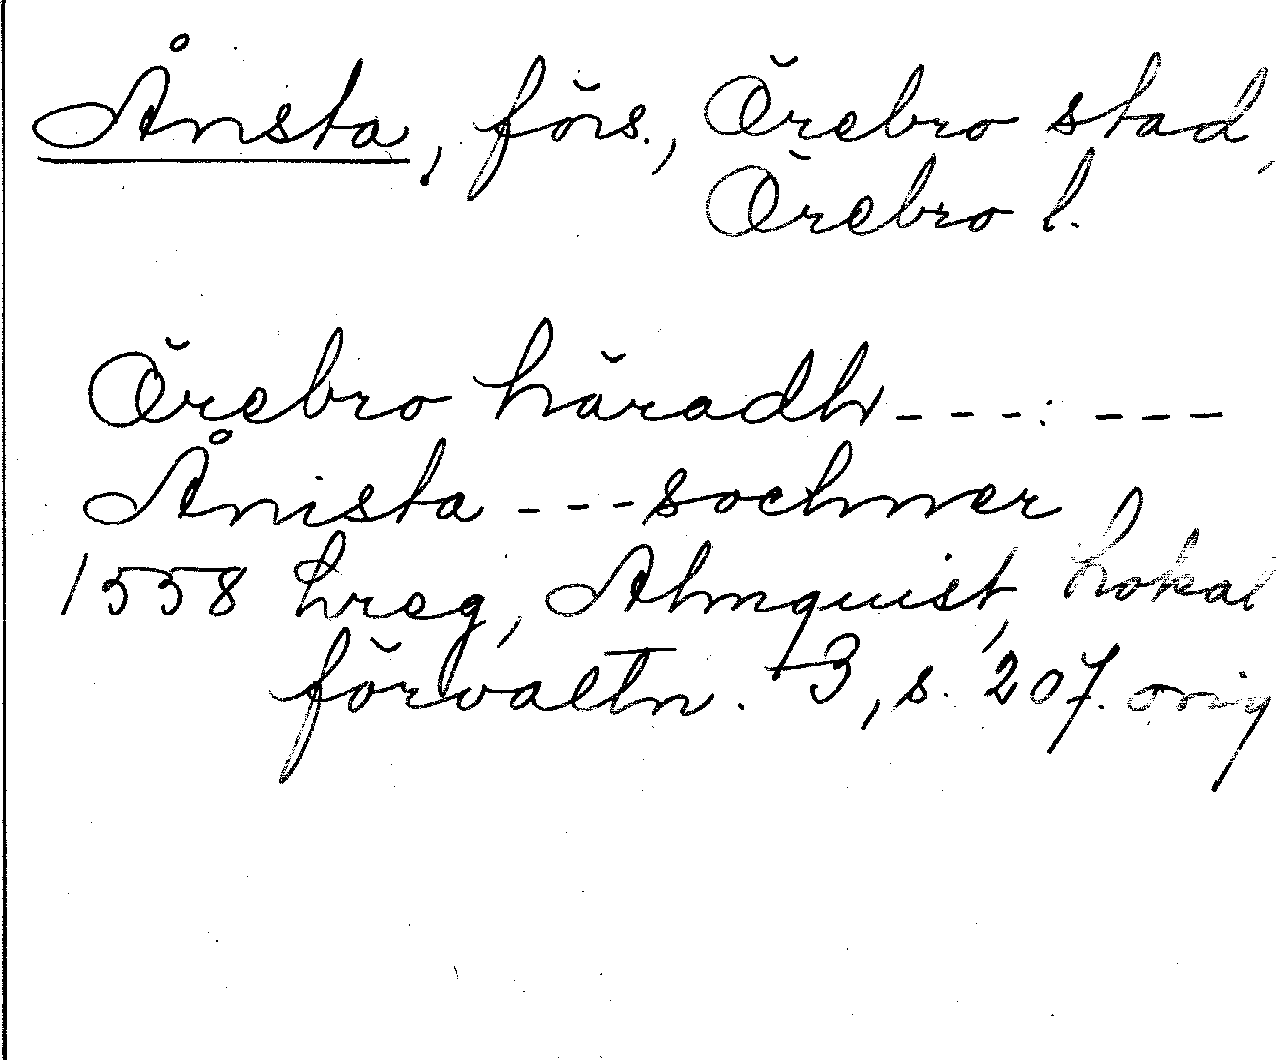 Ånsta, förs., Örebro stad,
Örebro l.
Örebro häradh ---: ---
Ånista --- sochner
1558 hreg, Almquist, Lokal
förvaltn. 3, s. 207. orig